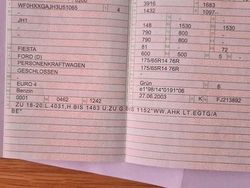 3916
1683
WF0HXXGAJH3U51065
148 1530 1530
JH1
790 790
81 80
FIESTA
72
FORD (D)
600 500 5
PERSONENKRAFTWAGEN
175/65R14 76R
GESCHLOSSEN
175/65R14 76R
Grün
EURO 4
e1*98/14*0191*06
Benzin
27.06.2003 K FJ213892
0001 0462 1242
ZU 18-20:L.4031,H.BIS 1463 U.ZU G BIS 1152*WW.AHK LT.EGTG/A
BE*